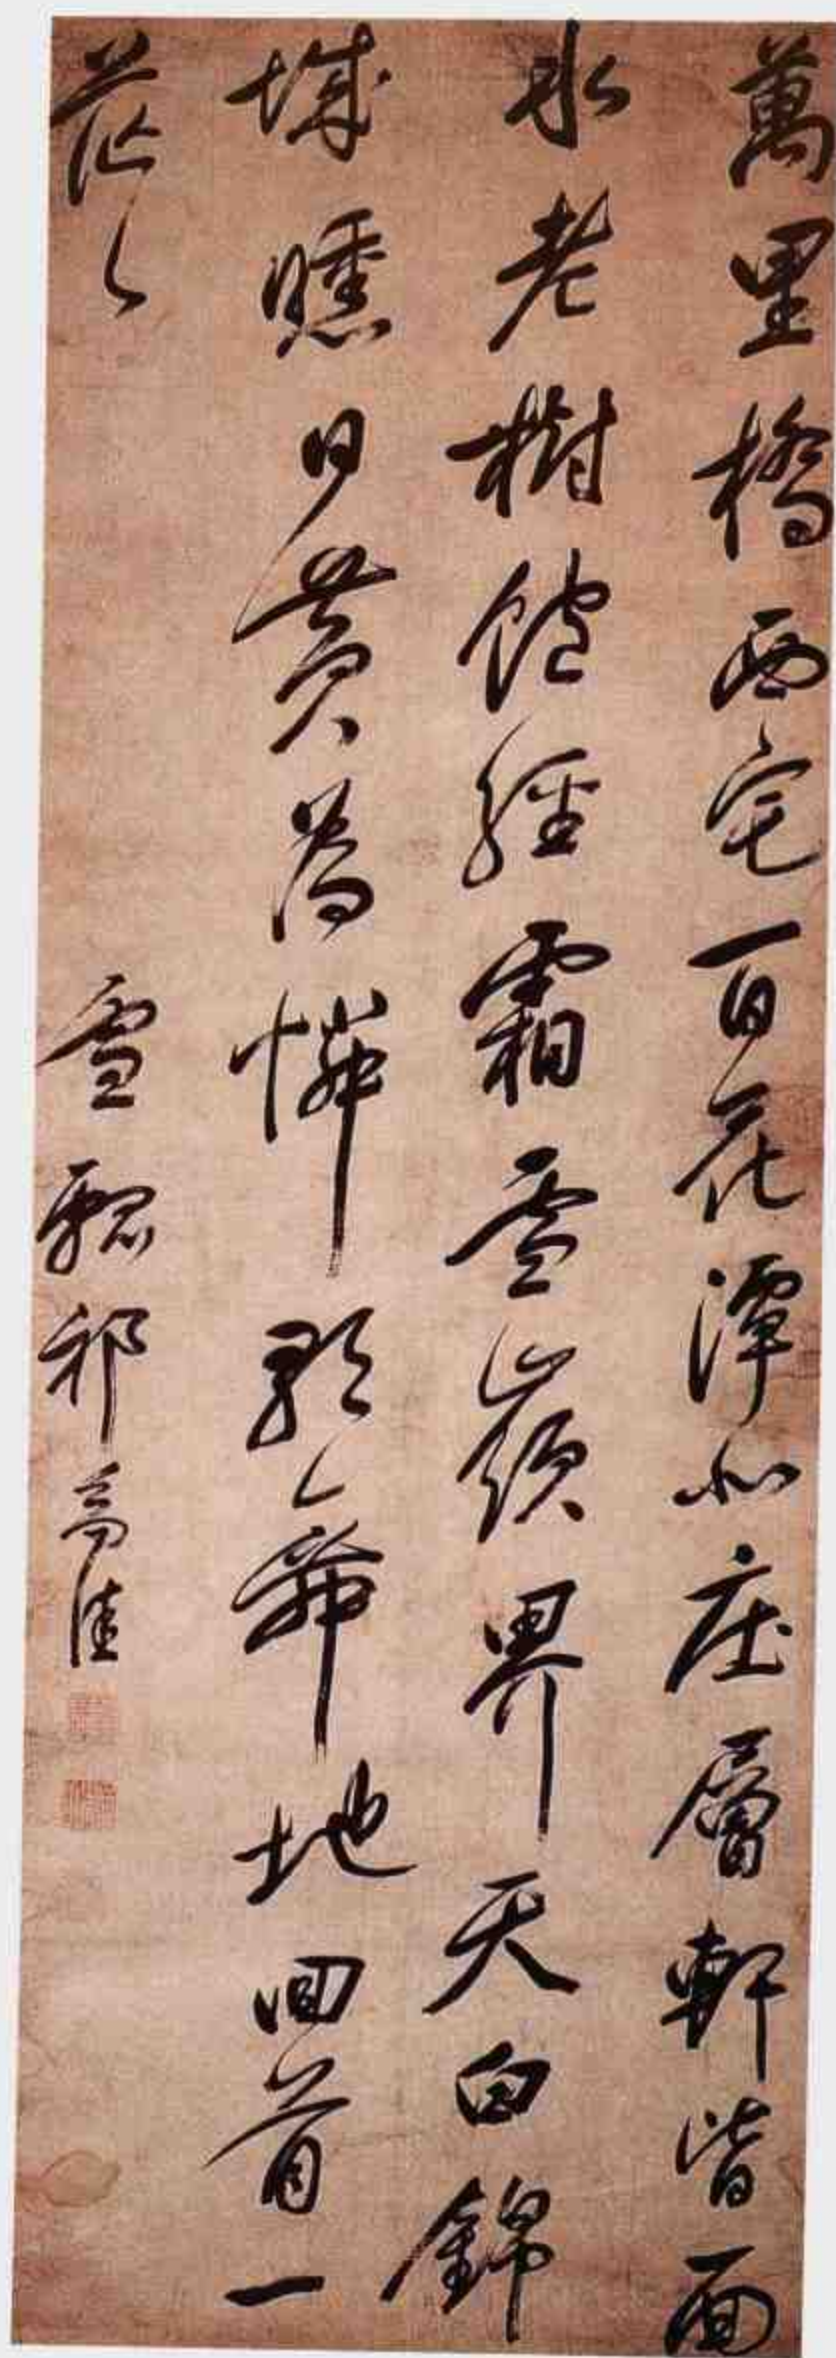 萬里橋西宅百花潭北庄層軒皆面
水老樹飽經霜雪嶺界天白錦
城曛日黃為憐歌舞地囬首一
茫〻
雪瓢祁豸佳